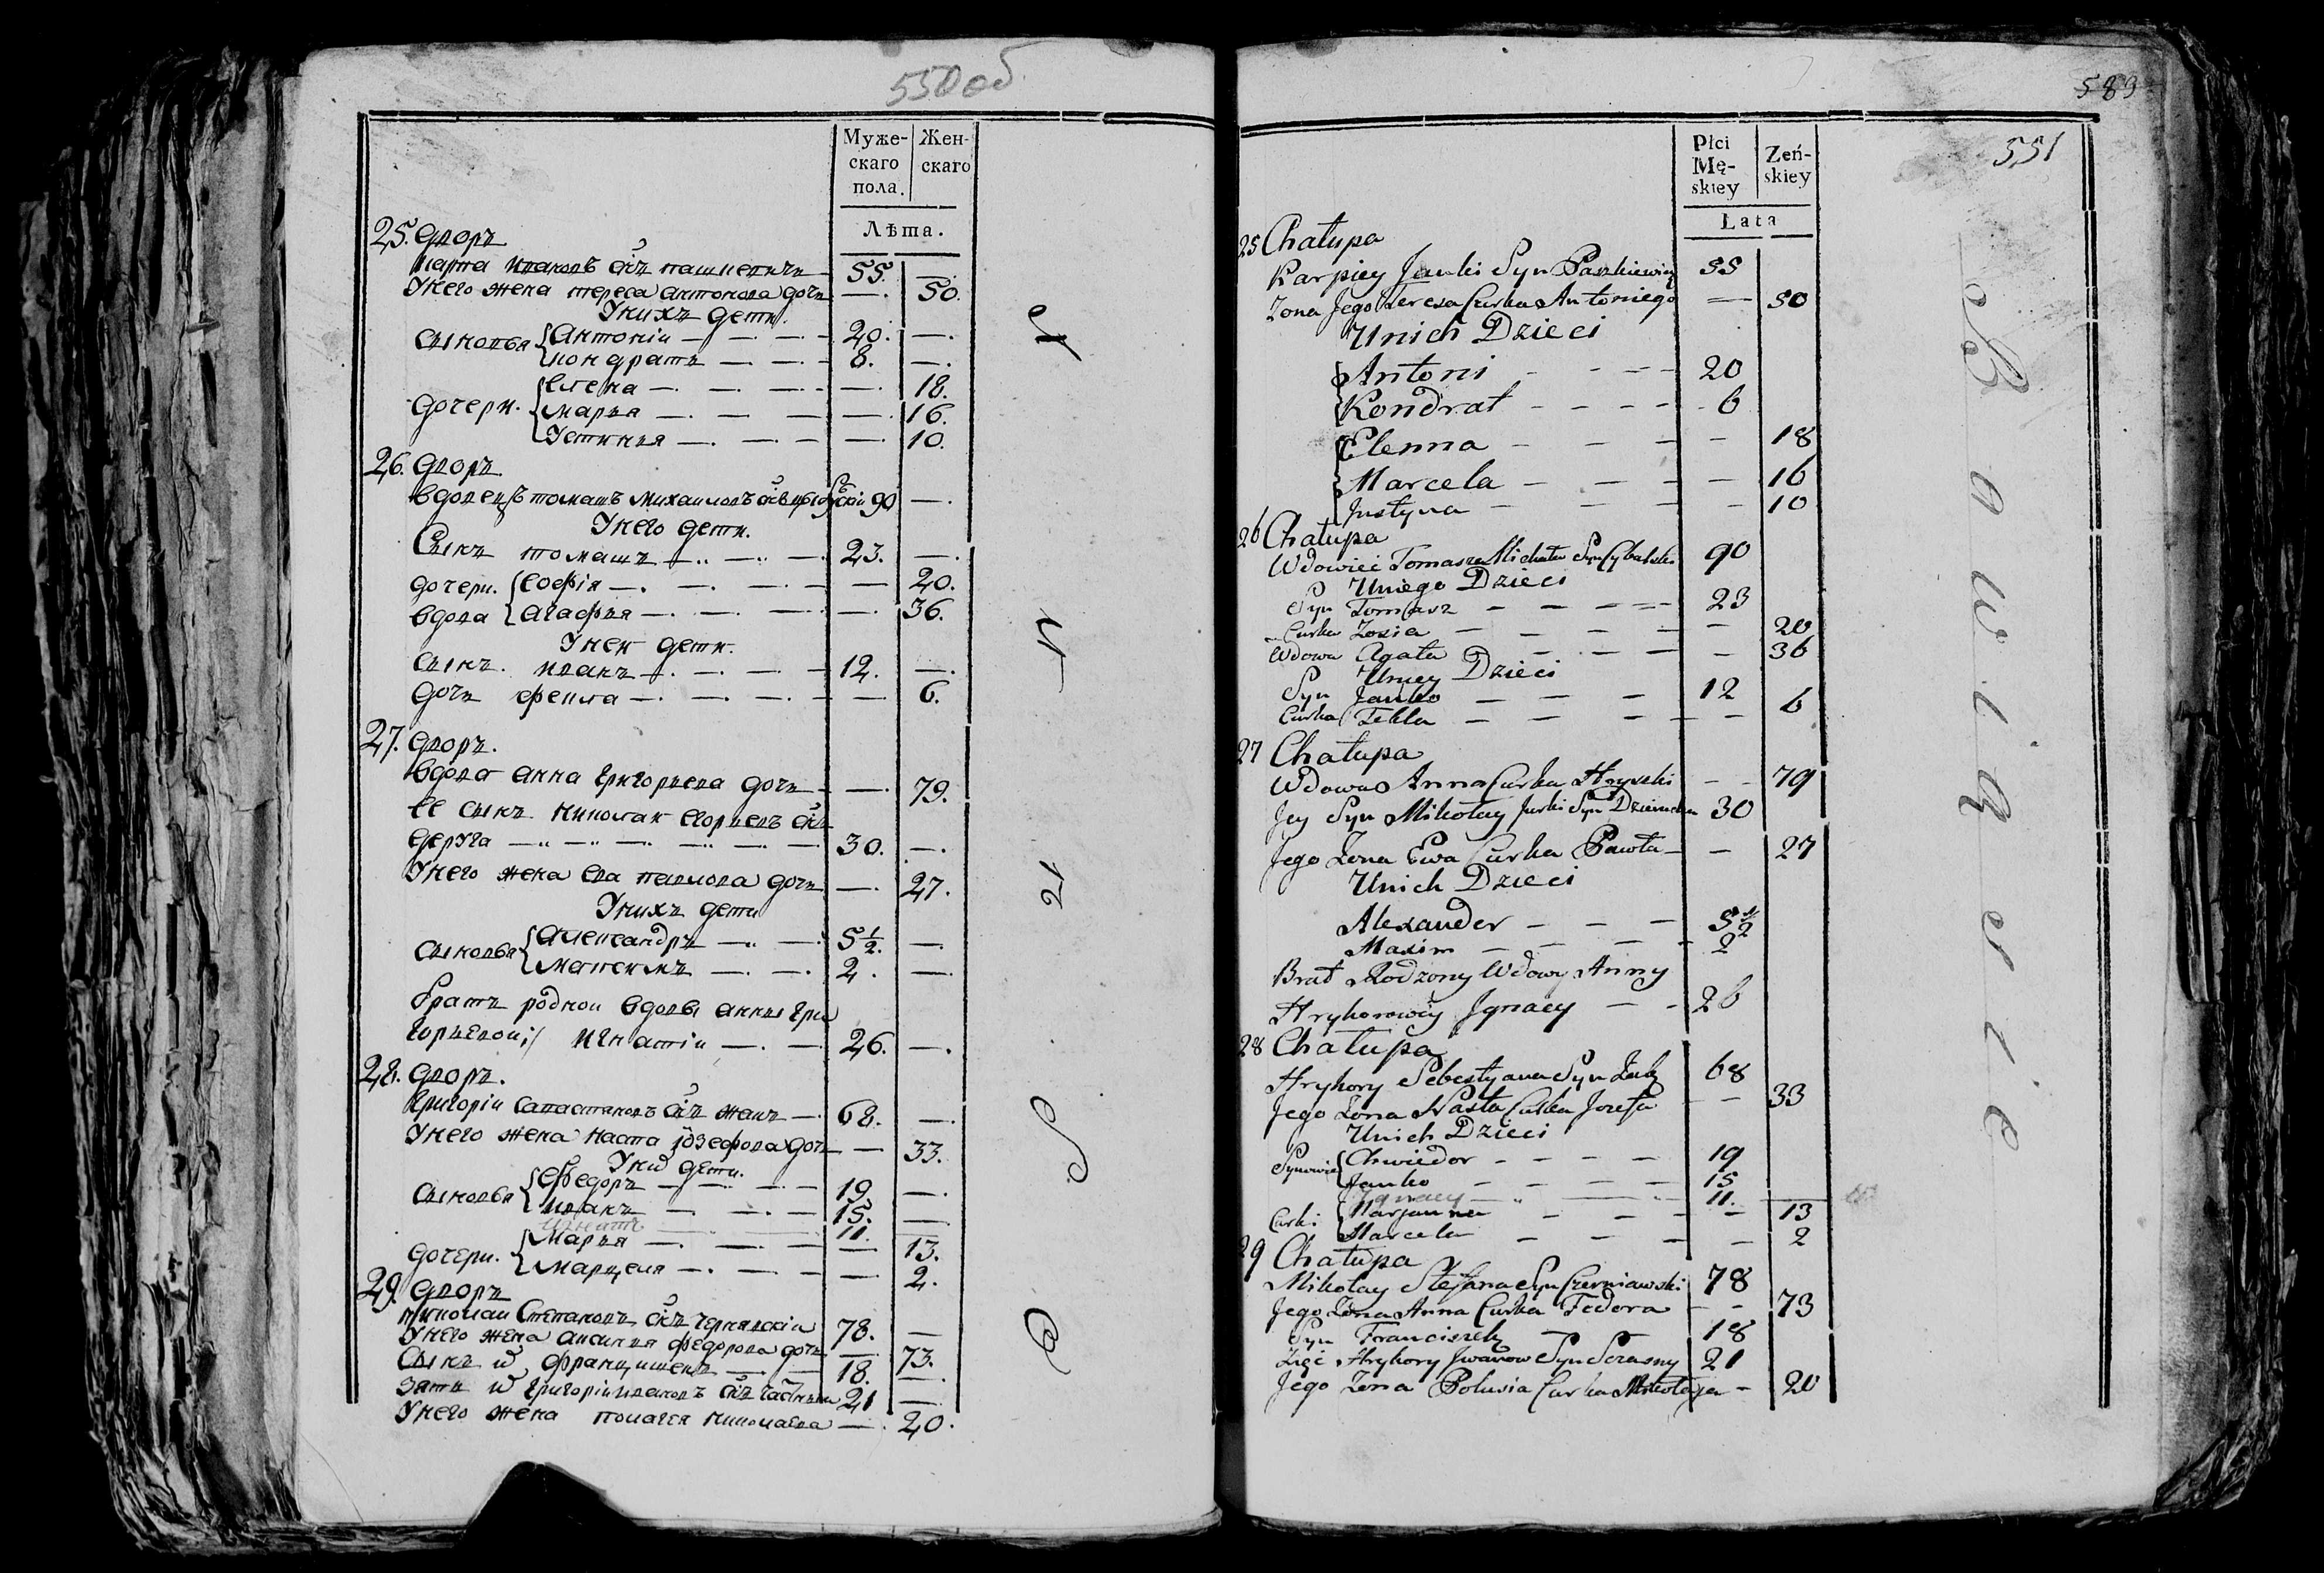 550 об
Муже-
скаго
пола.
Жен-
скаго
Лѣта.
25. Дворъ
Карпа Ивановъ сынъ пашкевичь 55. —
У него жена тереса антонова дочь — 50.
У нихъ дети.
сыновья Антоній — 20. —
кондратъ — 8. —
дочери. Елена — 18.
марья — 16.
Устинья — 10.
26. Дворъ
вдовецъ томашъ михаиловъ сынъ 90 —
У него дети.
Сынъ томашъ — 23. —
дочери. Софія — 20.
вдова агафья — 36.
У неи дети.
сынъ. иванъ — 12. —
дочь фекла — 6.
27. Дворъ.
вдова анна григорьева дочь — 79.
ее сынъ николаи егоровъ сынъ
деруга — 30. —
У него жена ева павлова дочь — 27.
У нихъ дети
сыновья александръ — 5 1/2. —
максимъ — 2. —
братъ роднои вдовы анны гри
горьевои игнатіи — 26. —
28. Дворъ.
григоріи савастьяновъ сынъ жакъ — 68. —
У него жена наста іозефова дочь — 33.
У ни дети.
сыновья федоръ — 19. —
иванъ — 15. —
игнатъ 11.
дочери. Марья — 13.
марцеля — 2.
29. Дворъ
николаи Степановъ сынъ чернявскіи 78. —
У него жена аксинья федорова дочь — 73.
Сынъ францишекъ — 18. —
зять григоріи ивановъ сынъ 21 —
У него жена полагея николаева — 20.
589
551
Płci
Mę-
skiey
Zeń-
skiey
Lata
25 Chałupa
Karpiey Janki Syn Paszkiewicz 55
Zona Jego Teresa Curka Antoniego — 50
Unich Dzieci
Antoni - - - - 20
Kondrat - - - - 6
Elenna - - - - 18
Marcela - - - - 16
Justyna - - - - 10
26 Chałupa
Wdowiec Tomasz Michała Syn Cybulski 90
Uniego Dzieci
Syn Tomasz - - - - 23
Curka Zosia - - - - 20
Wdowa Agata - - - - 36
Uniey Dzieci
Syn Janko - - - 12
Curka Tekla - - - - 6
27 Chałupa
Wdowa Anna Curka Hryszki - - 79
Jey Syn Mikołay Jurki Syn 30
Jego Zona Ewa Curka Pawła - - 27
Unich Dzieci
Alexander - - - 5 1/2
Maxim - - - - 2
Brat Rodzony Wdowy Anny
Hryhorowiy Jgnacy - - 26
28 Chałupa
Hryhory Sebestyana Syn Żuk 68
Jego Zona Nasta Curka Jozefa - - 33
Unich Dzieci
Synowie Chwiedor - - - - 19
Janko - - - - 15
Jgnacy - - - 11.
Curki Marjanna - - - - 13
Marcela - - - - 2
29 Chałupa
Mikołay Stefana Syn Czerniawski 78
Jego Zona Anna Curka Fedora - - 73
Syn Franciszek — 18
Zięć Hryhory Jwanow Syn Szczasny 21
Jego Zona Polusia Curka Mikołaja - 20